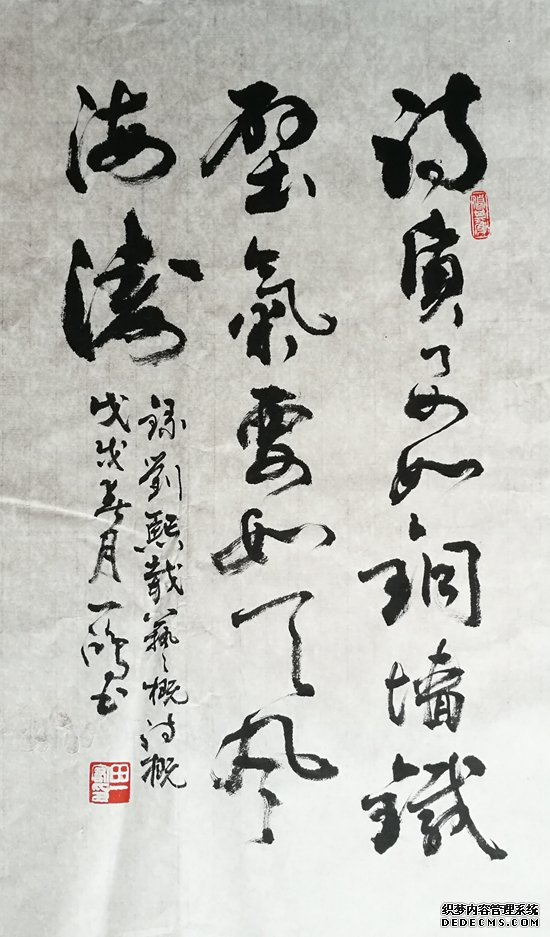 诗質要如銅墙鐵
壁氣要如天风
海濤
録劉熙載藝概诗概
戊戌春月一书
织梦内容管理系统
DEDECMS.COM